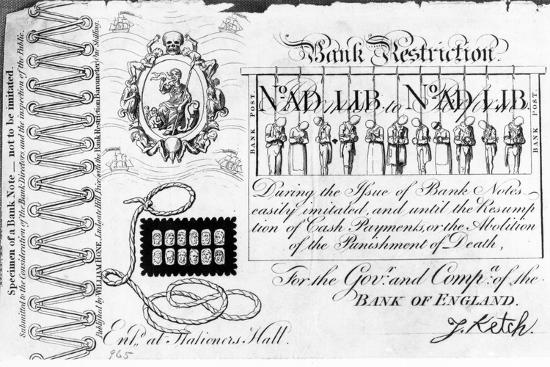 Specimen of a Bank Note — not to be imitated.
Submitted to the Consideration of the Bank Directors and the inspection of the Public.
Bank Restriction.
BANK POST
No. AD. LIB. to No. AD. LIB.
BANK POST.
During the Issue of Bank Notes
easily imitated, and until the Resump
tion of Cash Payments, or the Abolition
of the Punishment of Death,
For the Govr. and Compa. of the
BANK OF ENGLAND.
J. Ketch.
Entd. at Stationers Hall.
965